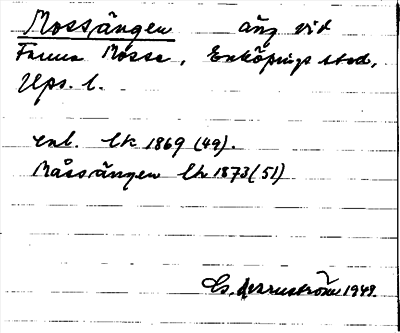 Mossängen äng vid
Fanna Mosse, Enköpings stad,
Ups. l.
enl. lk 1869 (49).
Måssängen lk 1873 (51)
1949.